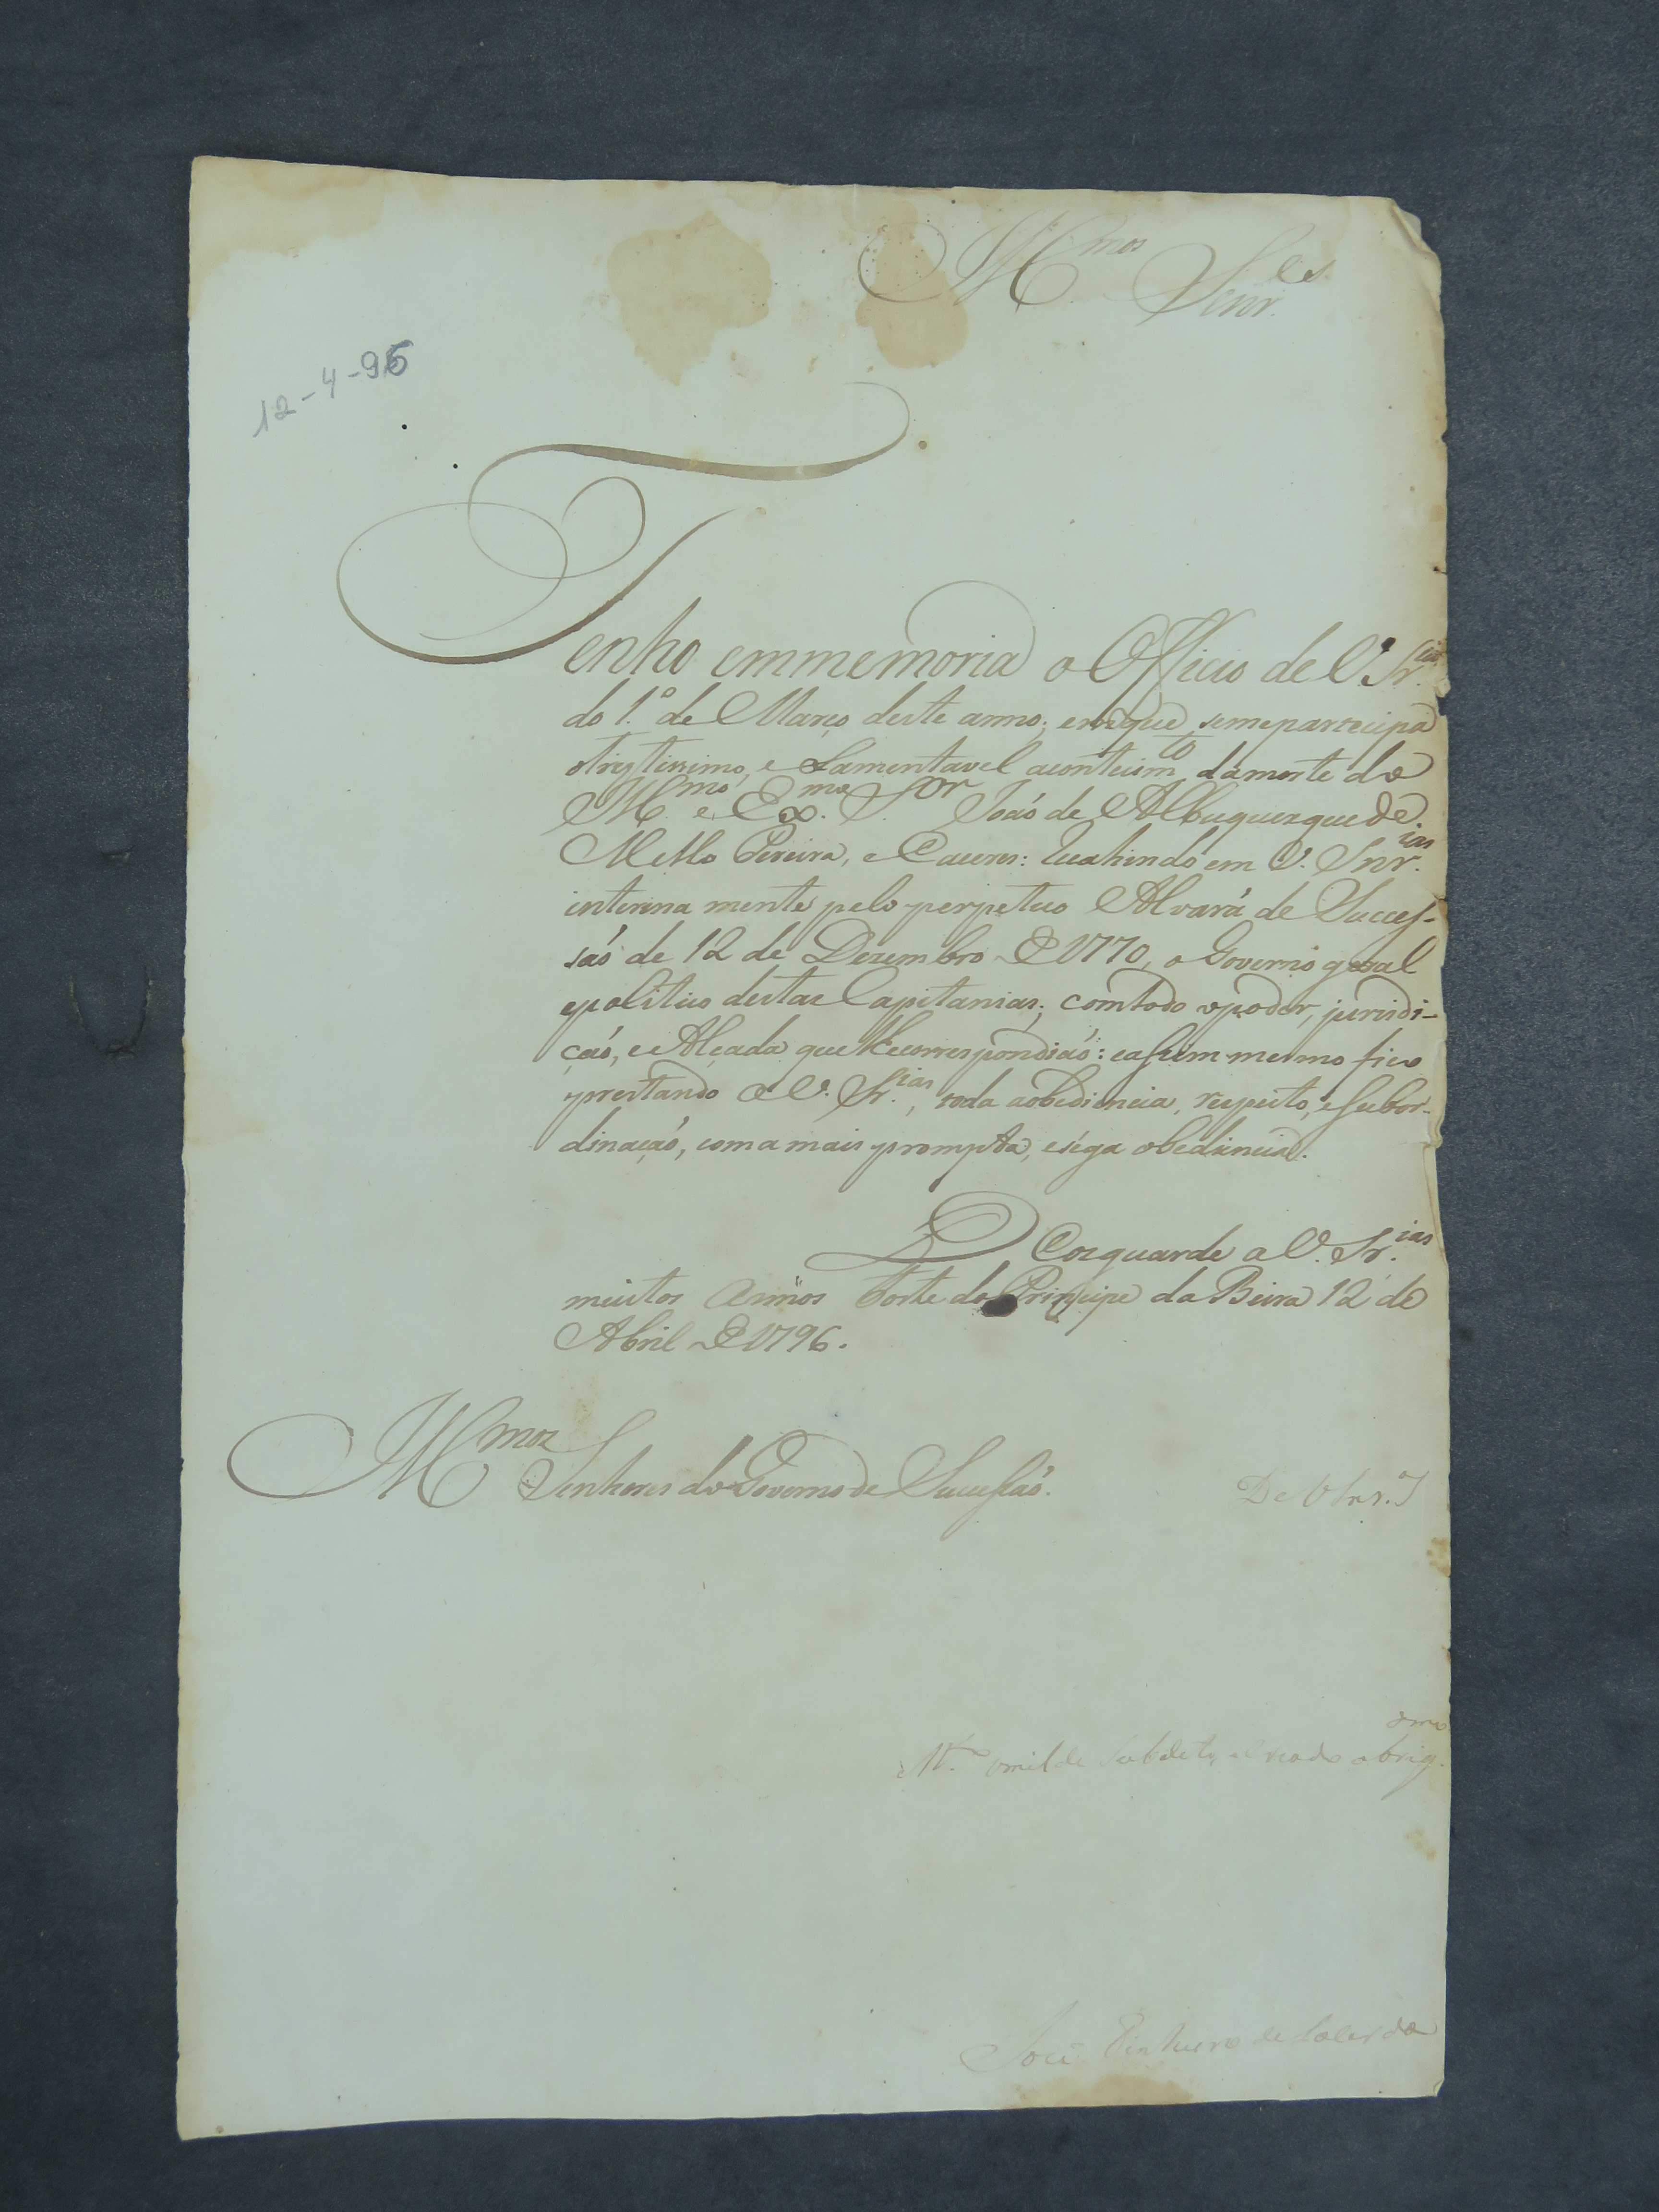 Ill.mos Senr.es
12-4-96
Tenho emmemoria o Officio de V. Sr.ias
do 1.º de Março deste anno; emque semepartecipa
otristissimo, e Lamentavel acontecim.to damorte do
Ill.mo e Ex.mo S.or João de Albuquerque de
Mello Pereira, e Caceres: recahindo em V. Snr.ias
interina mente pelo perpetuo Alvará de Succes-
são de 12 de Dezembro de 1770, o Governo geral
epolitico destas Capitanias; comtodo opoder, jurisdi-
ção, e Alçada que lhecorrespondião: eassim mesmo fico
prestando a V. Sr.ias, toda aobediencia, respeito, esubor-
dinação, coma mais prompta, eséga obediencia.
Deos guarde a V. Sr.ias
muitos annos Forte do Principe da Beira 12 de
Abril de 1796.
Ill.mos Senhores do Governo de Sucessão.
De V Snr.as
M.to omilde Subdito, e criado obrig.dmo
José Pinheiro de Lacerda